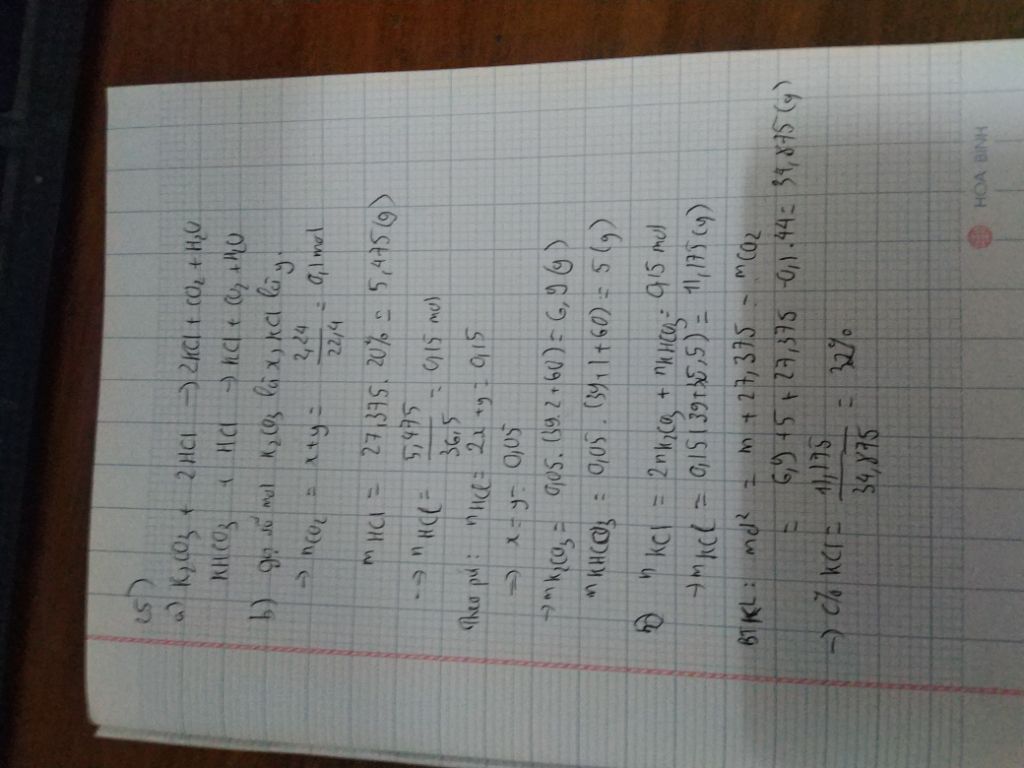 25)
a) K2CO3 + 2HCl → 2KCl + CO2 + H2O
KHCO3 + HCl → KCl + CO2 + H2O
b) gọi số mol K2CO3 là x, KCl là y.
→ nCO2 = x+y = 2,24/22,4 = 0,1 mol
mHCl = 27,375. 20% = 5,475 (g)
→ nHCl = 5,475/36,5 = 0,15 mol
Theo pứ: nHCl = 2x + y = 0,15
=> x = y = 0,05
→ mK2CO3 = 0,05. (39.2+60) = 6,9 (g)
mKHCO3 = 0,05. (39+1+60) = 5 (g)
nKCl = 2nK2CO3 + nKHCO3 = 0,15 mol
→ mKCl = 0,15 (39+35,5) = 11,175 (g)
BTKL: mdd = m + 27,375 - mCO2
= 6,9 + 5 + 27,375 - 0,1.44 = 34,875 (g)
→ C% KCl = 11,175/34,875 = 32%
HOA BINH